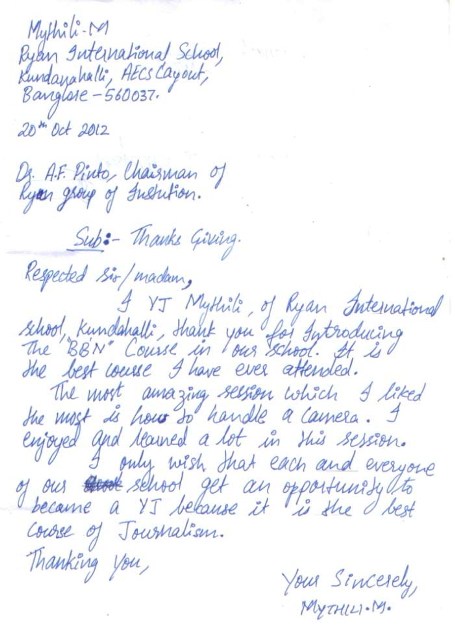 Mythili-M
Ryan International School,
Kundanahalli, AECS Layout,
Banglore - 560037.
20th Oct 2012
Dr. A.F. Pinto, Chairman of
Ryan group of Instution.
Sub:- Thanks Giving.
Respected sir/madam,
I YJ Mythili, of Ryan International
school, Kundahalli, thank you for Introducing
The "BBN" Course in our school. It is
the best course I have ever attended.
The most amazing session which I liked
the most is how to handle a camera. I
enjoyed and learned a lot in this session.
I only wish that each and everyone
of our school get an opportunity to
became a YJ because it is the best
course of Journalism.
Thanking you,
Your Sincerely,
MYTHILI.M.